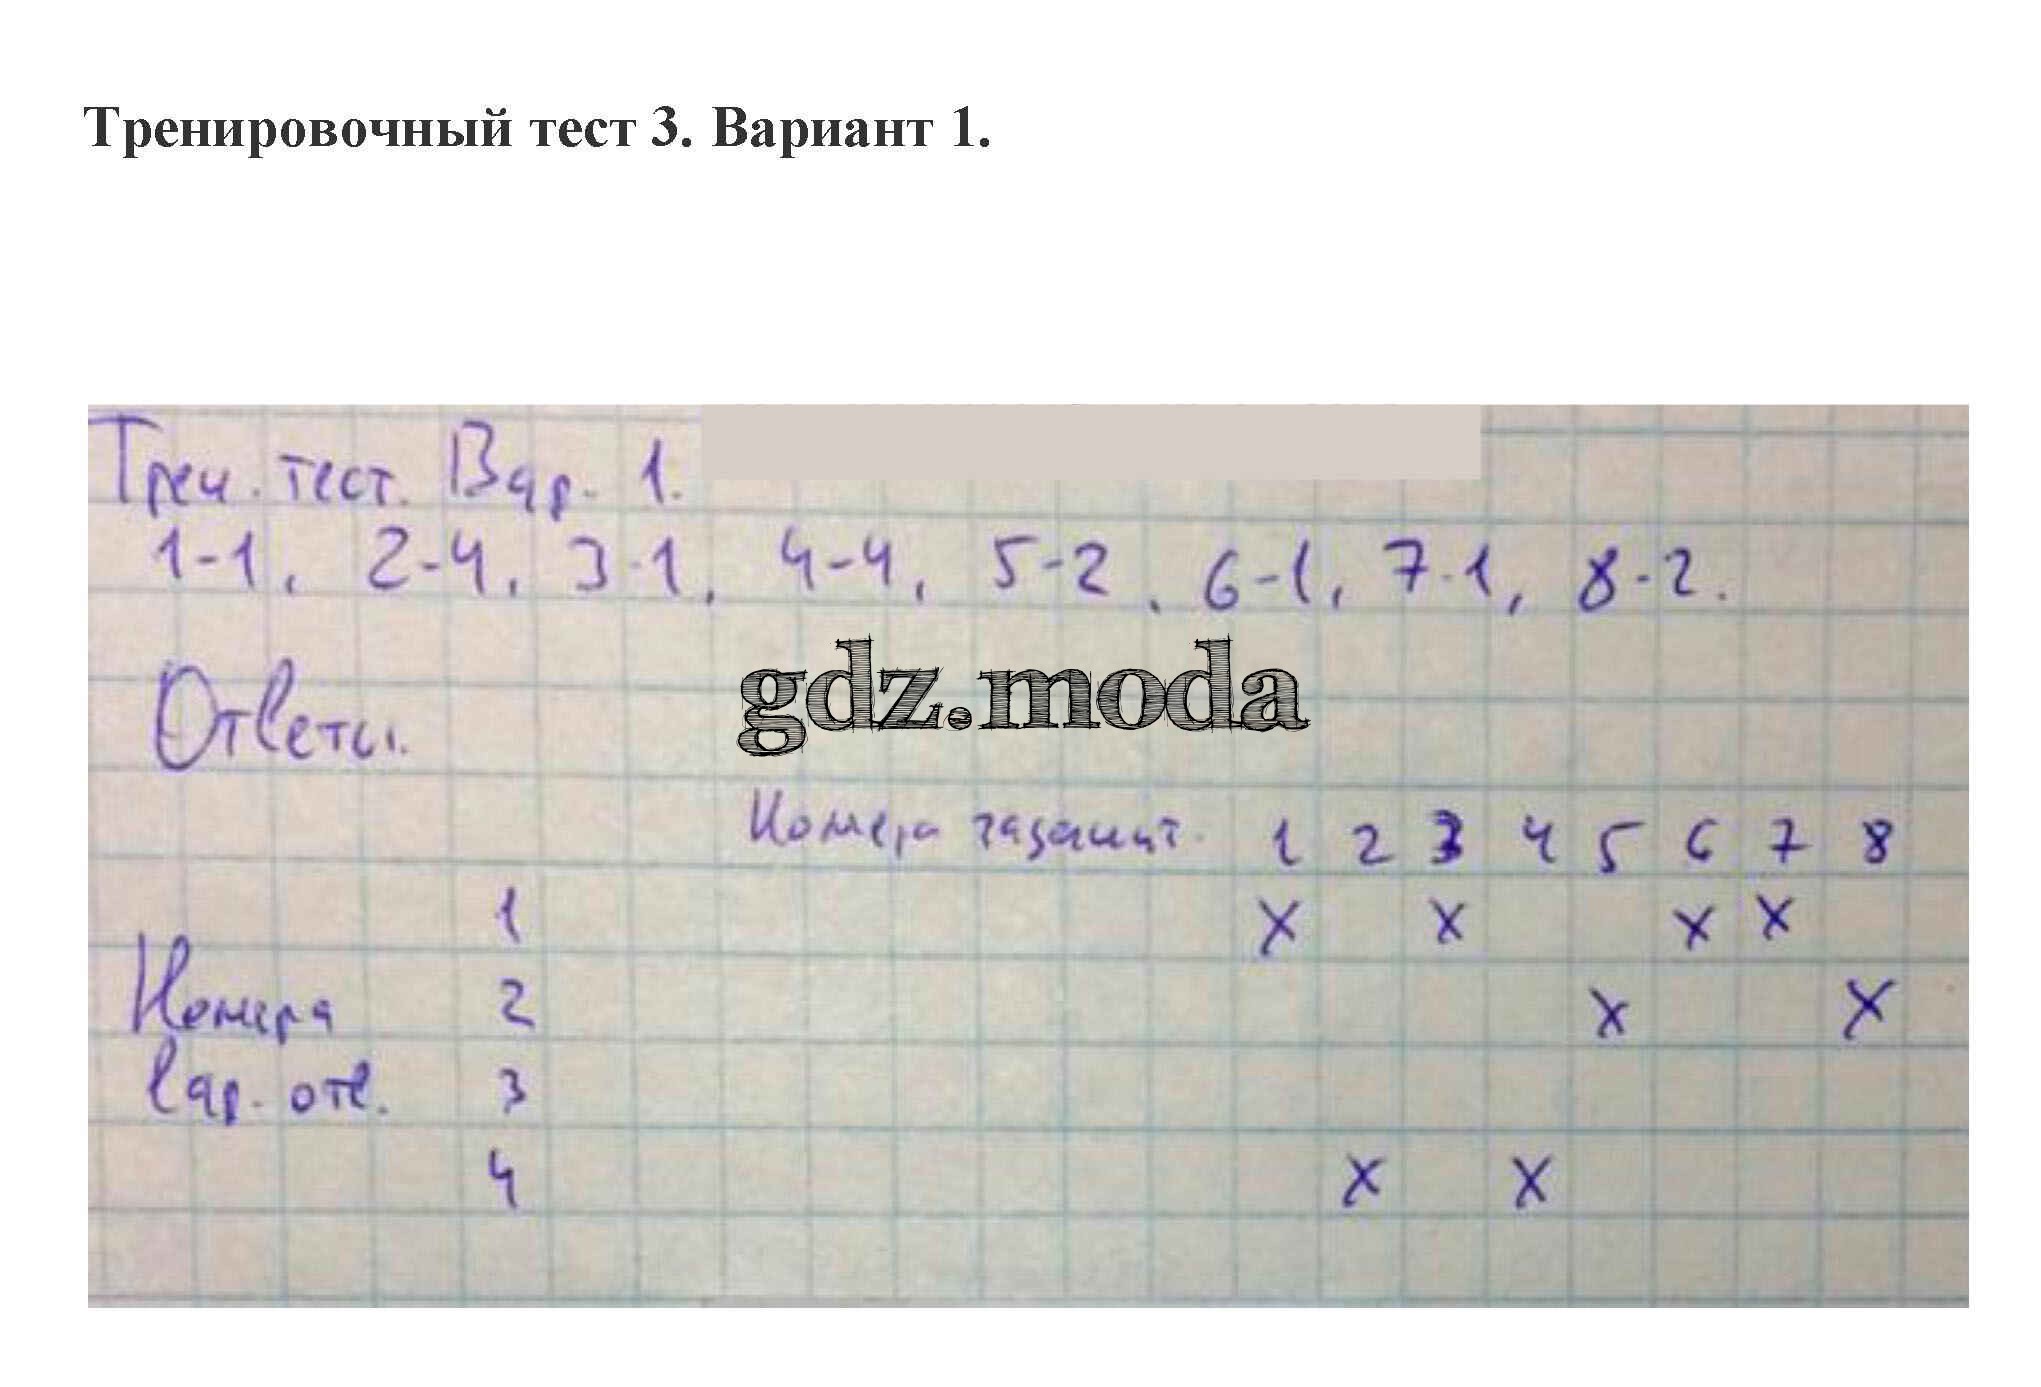 Тренировочный тест 3. Вариант 1.
Трен. тест. Вар. 1.
1-1, 2-4, 3-1, 4-4, 5-2, 6-1, 7-1, 8-2.
gdz.moda
Ответы.
Номера 1 2 3 4 5 6 7 8
1 X X X X
Номера 2 X X
вар. отв. 3
4 X X